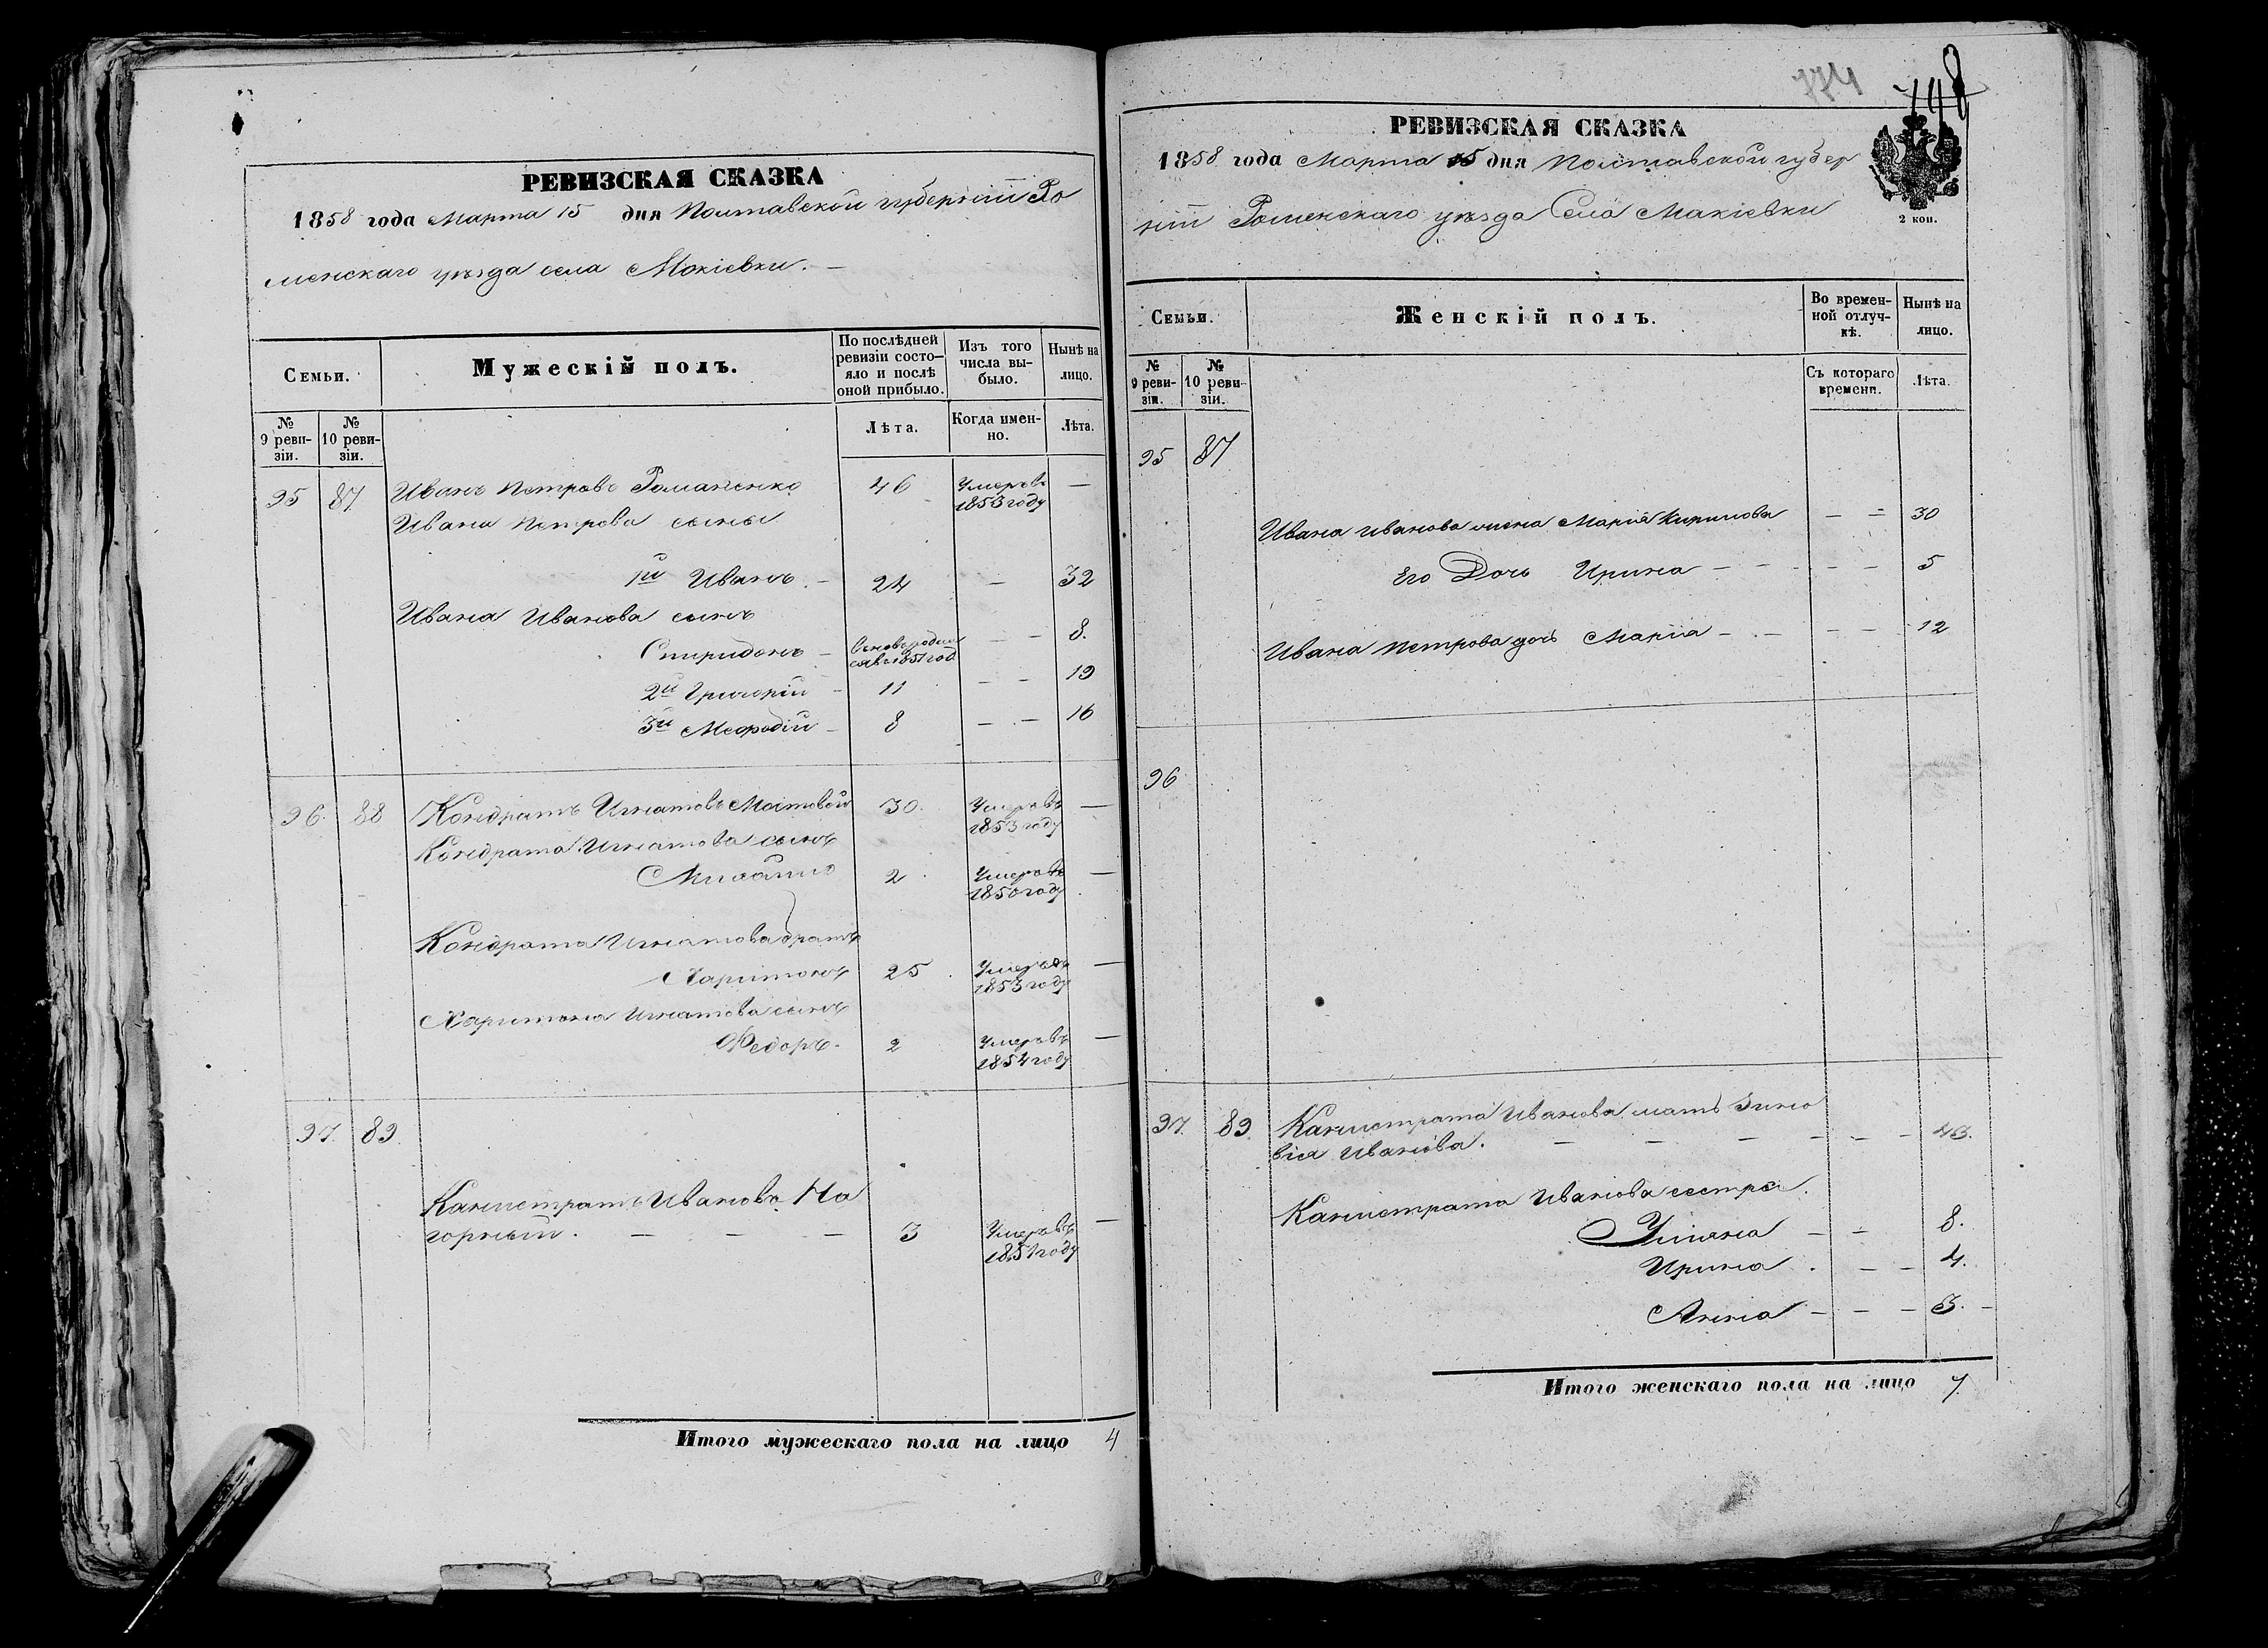 РЕВИЗСКАЯ СКАЗКА
1858 года Марта 15 дня Полтавской губернiи Ро
менскаго уѣзда села Мокiевки.
Семьи.
Мужескiй полъ.
По послѣдней ревизiи состо-
яло и послѣ
оной прибыло.
Изъ того
числа вы-
было.
Нынѣ на
лицо.
№ 9 реви-
зiи.
№ 10 реви-
зiи.
Лѣта.
Когда имен-
но.
Лѣта.
95 87 Иванъ Петровъ Романенко 46 Умеръ въ 1853 году —
Ивана Петрова сыны
1й Иванъ. — 24 — 32
Ивана Иванова сынъ
Спиридонъ — родил
ся въ 1851 год — — 8.
2й Григорiй — 11 — — 19
3й Мефодiй — 8 — — 16
96. 88 Кондратъ Игнатовъ Мостовой 30. Умеръ въ 1853 году —
Кондрата Игнатова сынъ
Михайло 2 Умеръ въ 1850 году —
Кондрата Игнатова братъ
Харитонъ 25 Умеръ въ 1853 году —
Харитона Игнатова сынъ
Федоръ. 2 Умеръ въ 1854 году —
97. 89.
Ивановъ На
горный. — — — 3 Умеръ въ 1851 году —
Итого мужескаго пола на лицо 4
774
748
РЕВИЗСКАЯ СКАЗКА
1858 года Марта 15 дня Полтавской губер
нiи Роменскаго уѣзда Села Макiевки
2 коп.
Семьи.
Женскiй полъ.
Во времен-
ной отлуч-
кѣ.
Нынѣ на
лицо.
№ 9 реви-
зiи.
№ 10 реви-
зiи.
Съ котораго
времени.
Лѣта.
95 87
Ивана Иванова жена Марiя Кирилова — — 30
Его Дочь Ирина — — — — 5
Ивана Петрова дочь Марiа — — — — 12
96
97. 89. Иванова мать Зино
вiя Иванова. — — — — — —
Иванова сестра.
Улiяна — — 8.
Ирина . — — 4.
Анна — — — 3. —
Итого женскаго пола на лицо 7